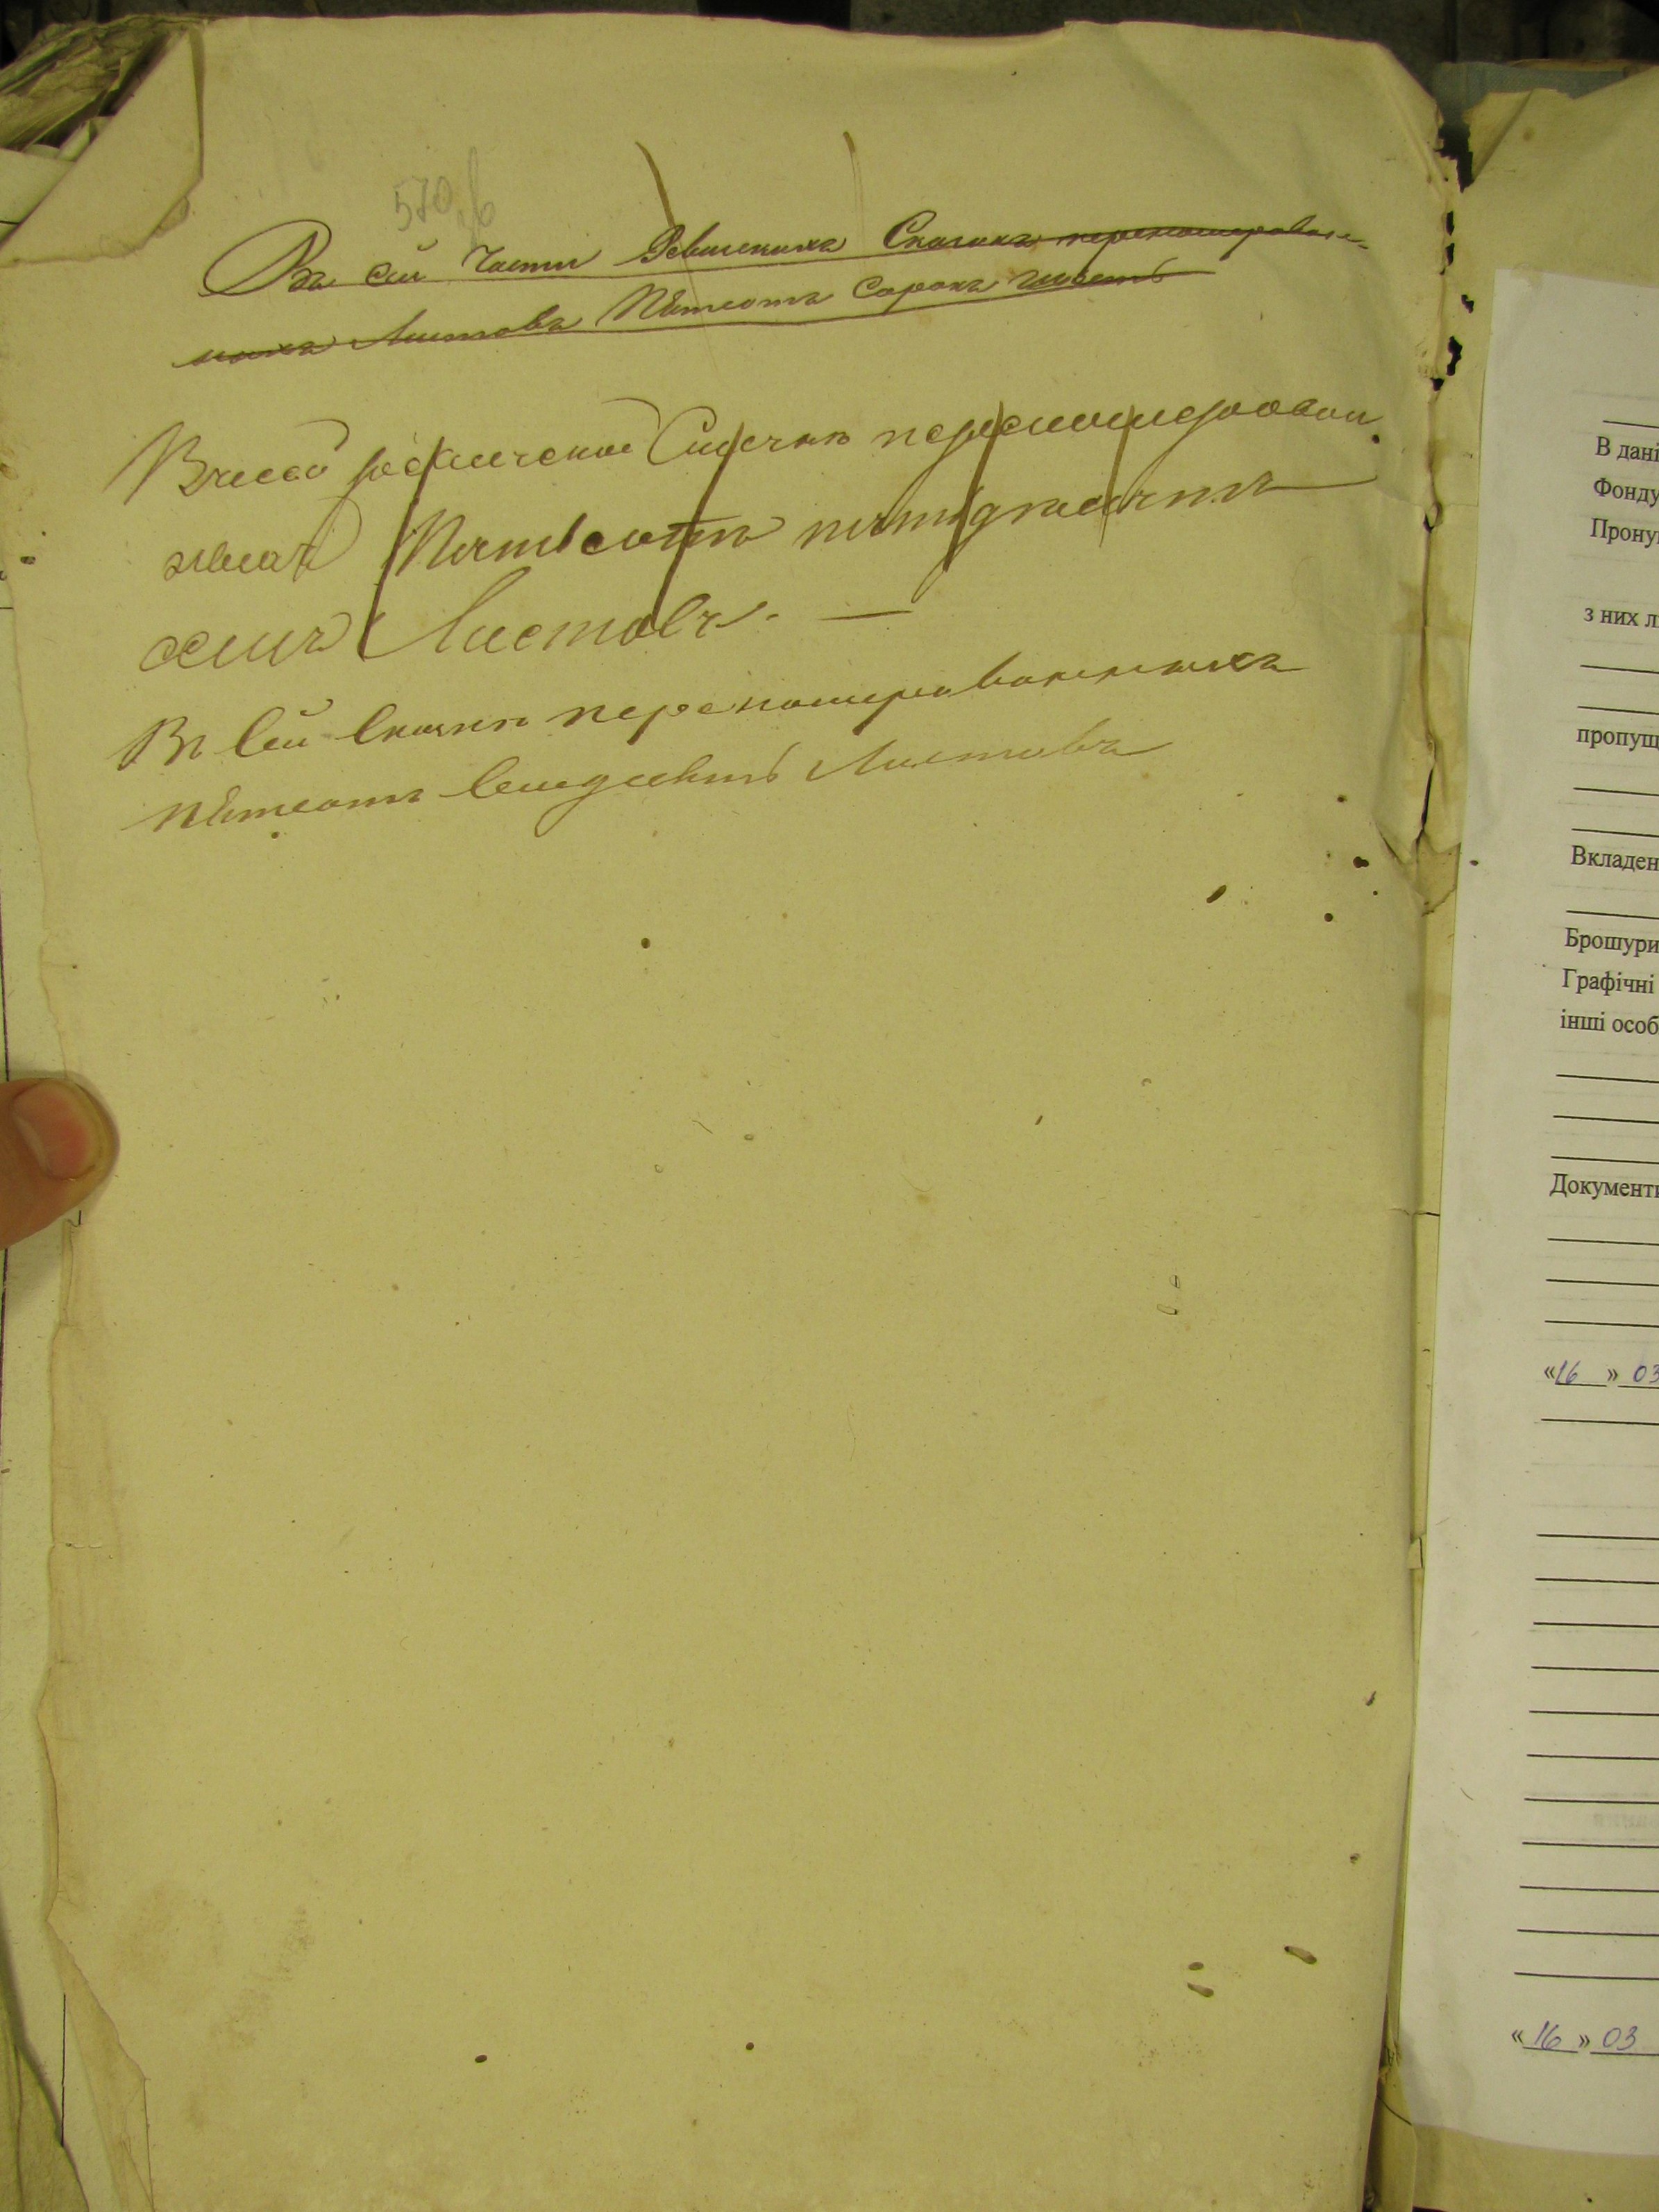 570
Въ сей Части Ревизскихъ Сказокъ переномерован-
ныхъ Листовъ Пятсотъ Сорокъ шесть
ревизской перенумерован
Пятьсотъ пятидесятъ
Листовъ. —
Въ Сей Скаскѣ переномерованныхъ
пятсотъ Семдесятъ Листовъ
В дані
Фонду
Прону
з них л
пропущ
Вкладен
Брошури
Графічні
інші особ
Документ
«16» 03
«16» 03